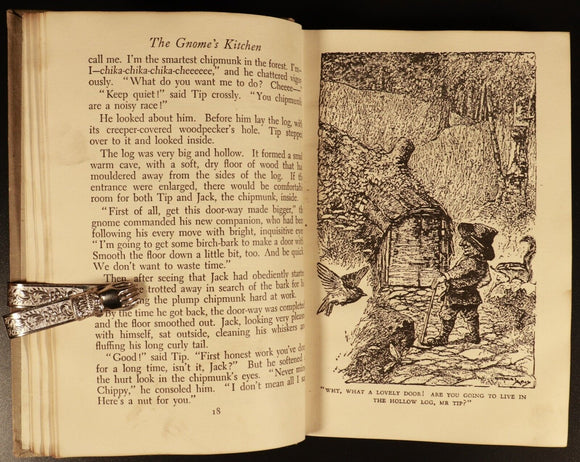 The Gnome's Kitchen
call me. I'm the smartest chipmunk in the forest. I'm—
I—chika-chika-chika-cheeeeee," and he chattered
ously. "What do you want me to do? Cheeee—"
"Keep quiet!" said Tip crossly. "You chipmunks
are a noisy race!"
He looked about him. Before him lay the log, with
its creeper-covered woodpecker's hole. Tip stepped
over to it and looked inside.
The log was very big and hollow. It formed a small
warm cave, with a soft, dry floor of wood that had
mouldered away from the sides of the log. If the
entrance were enlarged, there would be comfortable
room for both Tip and Jack, the chipmunk, inside.
"First of all, get this door-way made bigger," the
gnome commanded his new companion, who had been
following his every move with bright, inquisitive eyes.
"I'm going to get some birch-bark to make a door with.
Smooth the floor down a little bit, too. And be quick.
We don't want to waste time."
Then after seeing that Jack had obediently started
trotted away in search of the bark for
the plump chipmunk hard at work.
By the time he got back, the door-way was completed
and the floor smoothed out. Jack, looking very pleased
with himself, sat outside, cleaning his whiskers and
fluffing his long curly tail.
"Good!" said Tip. "First honest work you've done
for a long time, isn't it, Jack?" But he softened
the hurt look in the chipmunk's eyes. "Never mind,
Chippy," he consoled him. "I don't mean all I say.
Here's a nut for you."
18
"WHY, WHAT A LOVELY DOOR! ARE YOU GOING TO LIVE IN
THE HOLLOW LOG, MR TIP?"